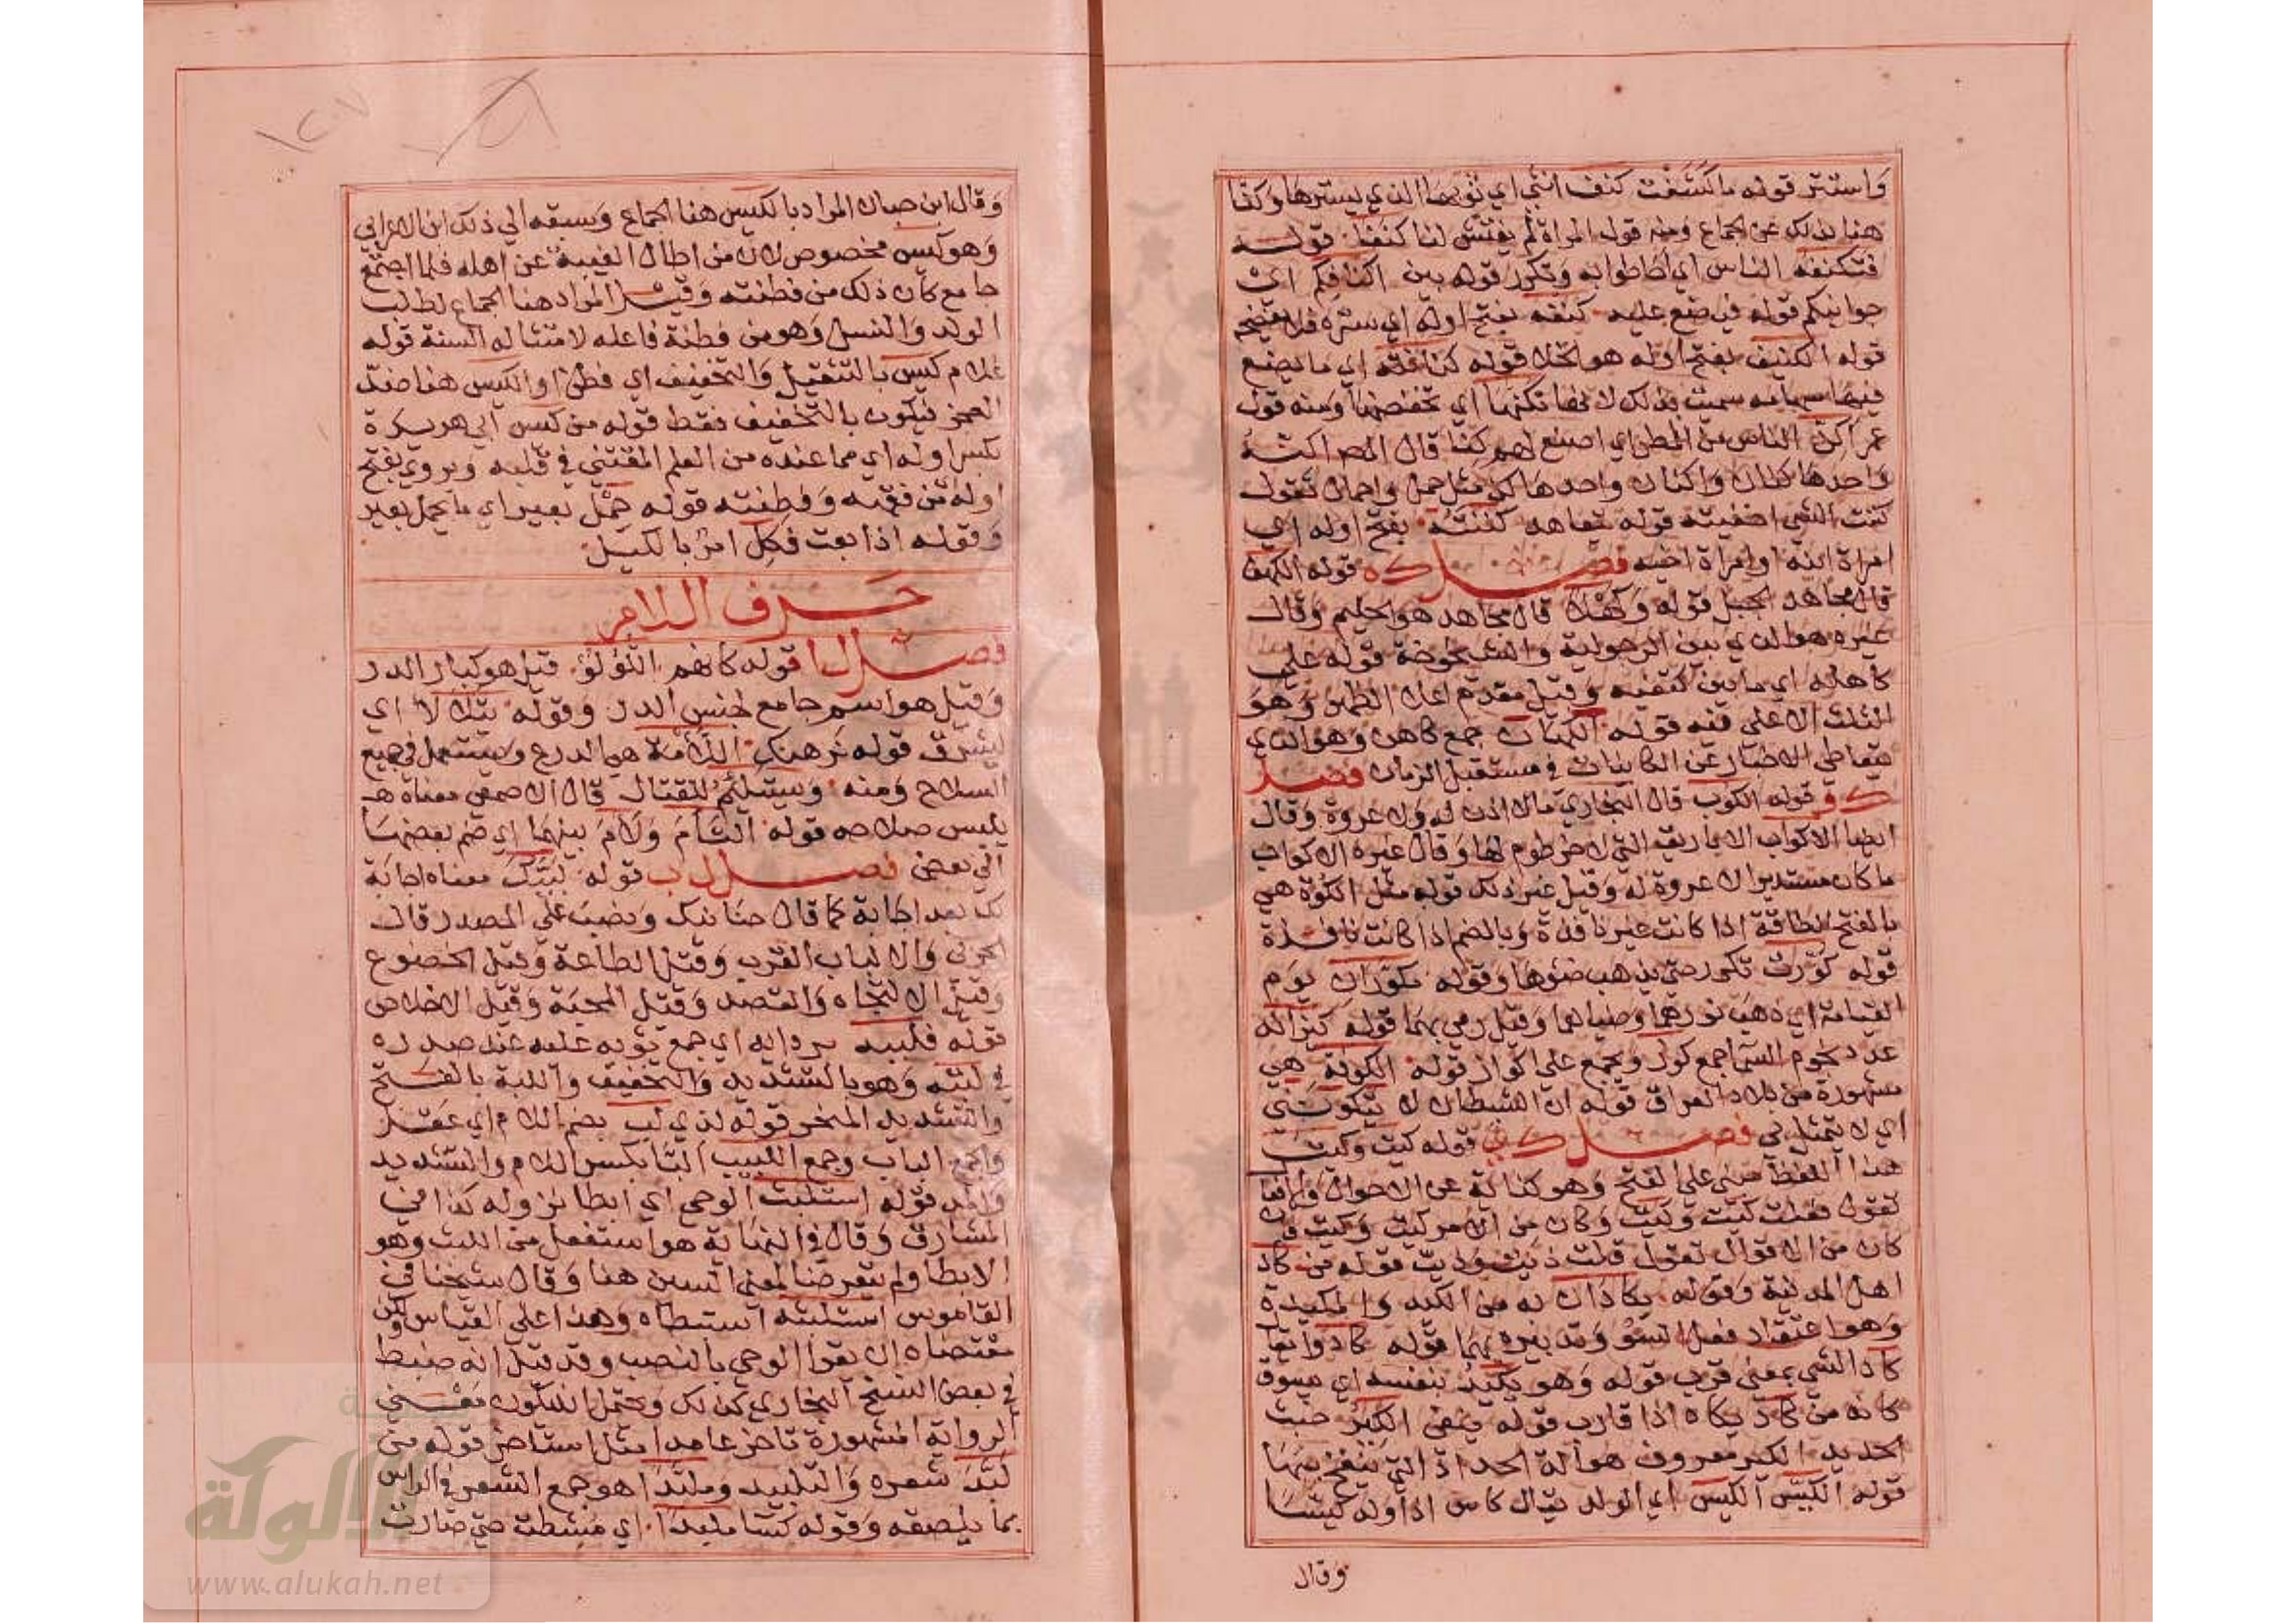 واستتر قوله ما كشفت كنف انثى اي ثوبها الذي يسترها وكنا
هنا بذلك عن الجماع ومنه قوله المراة لم يفتش لنا كنفا قوله
فتكنفه الناس اي احاطوا به وتكرر قوله بين اكنافكم اي
جوانبكم قوله فيضع عليه كنفه بفتح اوله اي ستره فلا يفضح
قوله الكنيف بفتح اوله هو الخلا قوله كنانته اي ما يضع
فيها سهامه سميت بذلك لانها تكنها اي تحفظها ومنه قول
عمر اكن الناس من المطر اي اصنع لهم كنا قال المص اكنة
واحدها كنان واكنان واحدها كن مثل حمل واحمال تقول
كننت الشي اخفيته قوله يتعاهد كنته بفتح اوله اي
امراة ابنه او امراة اخيه فصل ك ه قوله الكهف
قال مجاهد الجبل قوله وكهلا قال مجاهد هو الحليم وقال
غيره هو الذي بين الرجولية والشيخوخة قوله على
كاهله اي ما بين كتفيه وقيل مقدم اعلا الظهر وهو
الثلث الاعلى فيه قوله الكهان جمع كاهن وهو الذي
يتعاطى الاخبار عن الكاينات في مستقبل الزمان فصل
ك و قوله الكوب قال البخاري مالا اذن له ولا عروة وقال
ايضا الاكواب الاباريق التي لا خرطوم لها وقال غيره الاكواب
ما كان مستديرا لا عروة له وقيل غير ذلك قوله مثل الكوة هي
بالفتح الطاقة اذا كانت غير نافذة وبالضم اذا كانت نافذة
قوله كورت تكور حتى يذهب ضوها وقوله مكوران يوم
القيامة اي ذهب نورهما وضياهما وقيل رمي بهما قوله كيزانه
عدد نجوم السما جمع كوز ويجمع على اكواز قوله الكوفة هي
مشهورة من بلاد العراق قوله ان الشيطان لا يتكونني
اي لا يتمثل بي فصل ك ي قوله كيت وكيت
هذا اللفظ مبني على الفتح وهو كناية عن الاحوال والافعال
تقول فعلت كيت وكيت وكان من الامر كيت وكيت فان
كان من الاقوال تقول قلت ذيت وذيت قوله من كاد
اهل المدينة وقوله يكادان به من الكيد والمكيدة
وهو اعتقاد فعل السو وتدبيره بهما قوله كادوا يقال
كاد الشي بمعنى قرب قوله وهو يكيد بنفسه اي يسوق
كانه من كاد يكاد اذا قارب قوله ينفي الكير خبث
الحديد الكير معروف هو الة الحداد التي ينفخ بها
قوله الكيس الكيس اي الولد يقال كاس اذا ولد كيسا
وقال
وقال ابن حبان المراد بالكيس هنا الجماع وسبقه الى ذلك ابن الاعرابي
وهو كيس مخصوص لان من اطال الغيبة عن اهله فلما اجتمع
جامع كان ذلك من فطنته وقيل المراد هنا الجماع لطلب
الولد والنسل وهو من فطنة فاعله لامتثاله السنة قوله
غلام كيس بالتثقيل والتخفيف اي فطن او الكيس هنا ضد
العجز فيكون بالتخفيف فقط قوله من كيس ابي هريرة
بكسر اوله اي مما عنده من العلم المقتنى في قلبه ويروى بفتح
اوله من فقهه وفطنته قوله حمل بعير اي ما يحمل بعير
وقوله اذا بعت فكل امر بالكيل
حرف اللام
فصل ل ا قوله كانهم اللؤلؤ قيل هو كبار الدر
وقيل هو اسم جامع لجنس الدر وقوله يتلالا اي
يشرق قوله نرهنك اللامة هي الدرع ويستعمل في جميع
السلاح ومنه ويستلئم للقتال قال الاصمعي معناه
يلبس سلاحه قوله التام ولام بينهما اي ضم بعضها
الى بعض فصل ل ب قوله لبيك معناه اجابة
لك بعد اجابة كما قال حنانيك ونصب على المصدر قال
الحربي والالباب القرب وقيل الطاعة وقيل الخضوع
وقيل الاتجاه والقصد وقيل المحبة وقيل الاخلاص
قوله فلببه بردايه اي جمع ثوبه عليه عند صدره
في لبته وهو بالتشديد والتخفيف واللبة بالفتح
والتشديد المنحر قوله لذي لب بضم اللام اي عقل
والجمع الباب وجمع اللبيب البا بكسر اللام والتشديد
والمد قوله استلبث الوحي اي ابطا نزوله كذا في
المشارق وقال في النهاية هو استفعل من اللبث وهو
الابطا ولم يتعرضا لمعنى السين هنا وقال شيخنا في
القاموس استلبثه استبطاه وهذا على القياس ولكن
مقتضاه ان يقرا الوحي بالنصب وقد قيل انه ضبط
في بعض النسخ البخاري كذلك ويحتمل ان يكون معنى
الرواية المشهورة تاخر عامدا مثل استاخر قوله من
لبد شعره والتلبيد وملبدا هو جمع الشعر في الراس
بما يلصقه وقوله كسا ملبدا اي مشطت حتى صارت
الألوكة
www.alukah.net